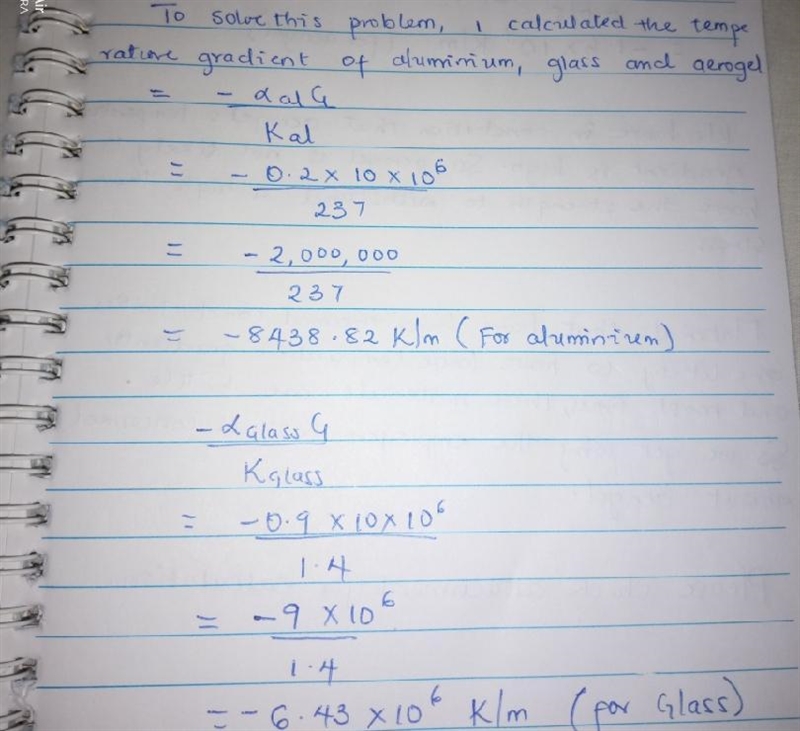 To solve this problem, I calculated the tempe
rature gradient of aluminium, glass and aerogel
= - αal G
Kal
= - 0.2 x 10 x 10⁶
237
= - 2,000,000
237
= - 8438.82 K/m (For aluminium)
- αGlass G
KGlass
= - 0.9 x 10 x 10⁶
1.4
= - 9 x 10⁶
1.4
= - 6.43 x 10⁶ K/m (for Glass)